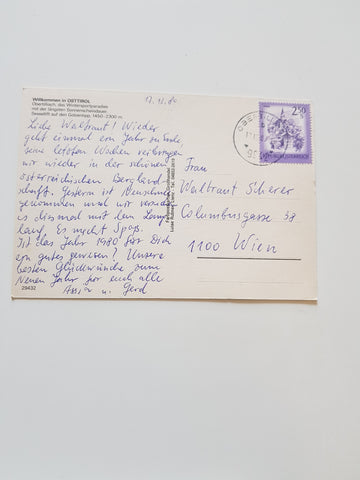 Willkommen in OSTTIROL
Obertilliach, das Wintersportparadies
mit der längsten Sonnenscheindauer.
Sessellift auf den Golzentipp, 1450-2300 m.
Liebe Waltraut! Wieder
geht einmal ein Jahr zu Ende,
seine letzten Wochen verbringen
wir wieder in der schönen
österreichischen Bergland-
schaft. Gestern ist Neuschnee
gekommen und wir versuchen
es diesmal mit dem Lang-
lauf. Es macht Spaß.
Ist das Jahr 1980 für Dich
ein gutes gewesen? Unsere
besten Glückwünsche zum
Neuen Jahr für euch alle
u. Gerd
29432
Frau
Waltraut Scherer
Columbusgasse 58
1100 Wien
2.50